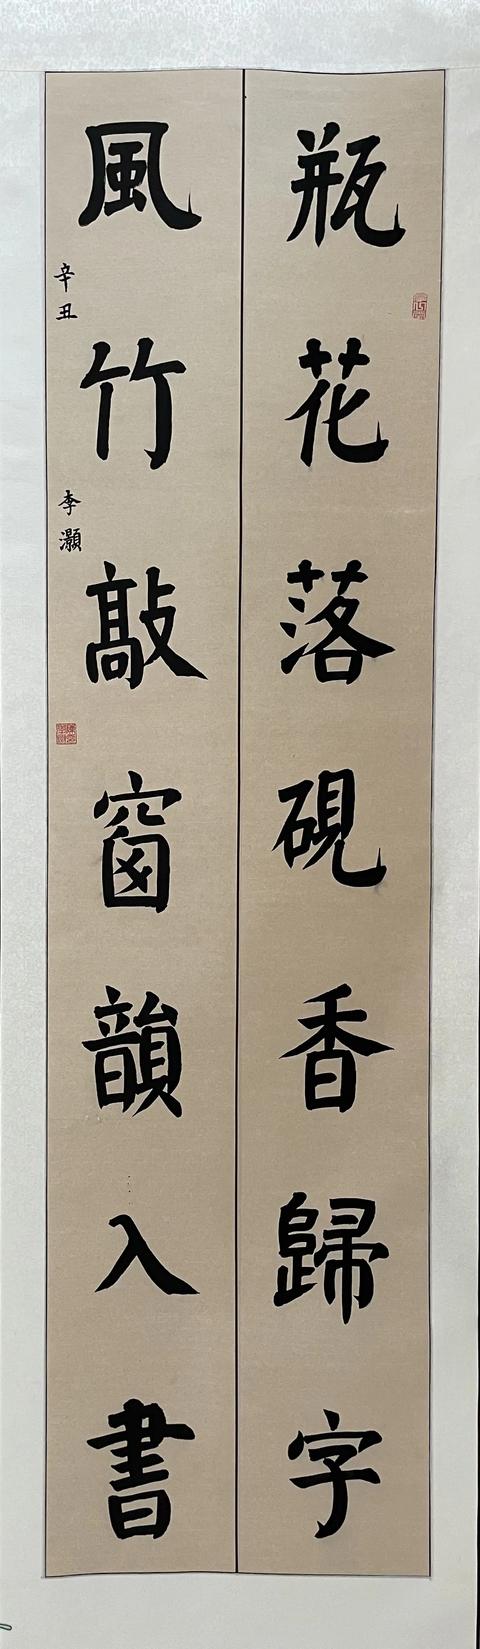 瓶花落硯香歸字
風竹敲窗韻入書
辛丑 李灝